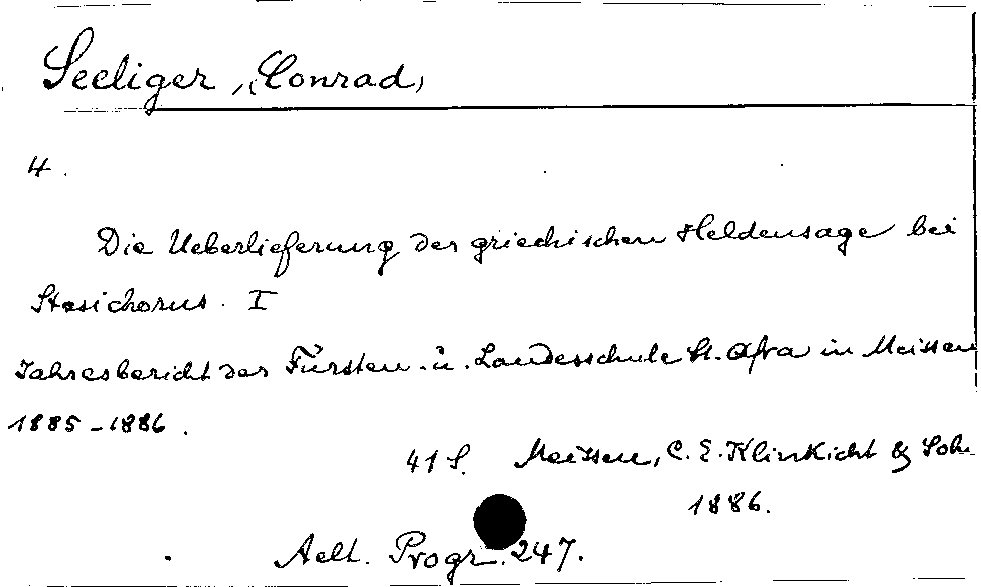 Seeliger, (Conrad)
4.
Die Ueberlieferung der griechischen Heldensage bei
Stesichorus. I
Jahresbericht der Fürsten- u. Landesschule St. Afra in Meissen
1885-1886.
41 S. Meissen, C. E. Klinkicht & Sohn
1886.
Aelt. Progr. 247.